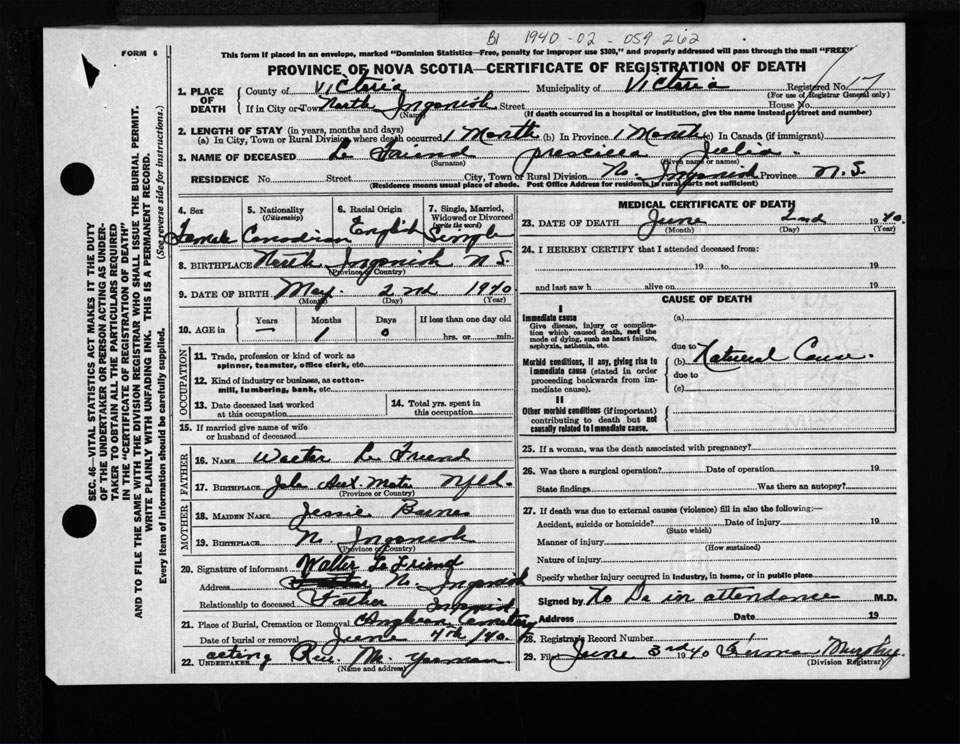 B1 1940-02-059262
FORM 6
This form if placed in an envelope, marked "Dominion Statistics—Free, penalty for improper use $300," and properly addressed will pass through the mail "FREE"
PROVINCE OF NOVA SCOTIA—CERTIFICATE OF REGISTRATION OF DEATH
1. PLACE OF DEATH
County of Victoria Municipality of Victoria Registered No. 17
(For use of Registrar General only)
If in City or Town North Ingonish Street House No.
(Name) (If death occurred in a hospital or institution, give the name instead of street and number)
2. LENGTH OF STAY (in years, months and days)
(a) In City, Town or Rural Division where death occurred 1 Month (b) In Province 1 Month (c) In Canada (if immigrant)
3. NAME OF DECEASED Le Friend Prescilla Julia.
(Surname) (Given name or names)
RESIDENCE No. Street City, Town or Rural Division No. Ingonish Province N.S.
(Residence means usual place of abode. Post Office Address for residents in rural parts not sufficient)
4. Sex Female
5. Nationality (Citizenship) Canadian
6. Racial Origin English
7. Single, Married, Widowed or Divorced (write the word) Single
8. BIRTHPLACE North Ingonish N.S.
(Province or Country)
9. DATE OF BIRTH May 2nd 1940.
(Month) (Day) (Year)
10. AGE in Years — Months 1 Days 0 If less than one day old
hrs. or min.
OCCUPATION
11. Trade, profession or kind of work as spinner, teamster, office clerk, etc.
12. Kind of industry or business, as cotton-mill, lumbering, bank, etc.
13. Date deceased last worked at this occupation
14. Total yrs. spent in this occupation
15. If married give name of wife or husband of deceased
FATHER
16. NAME Walter Le Friend
17. BIRTHPLACE Nfld.
(Province or Country)
MOTHER
18. MAIDEN NAME Jessie
19. BIRTHPLACE N. Ingonish
(Province or Country)
20. Signature of informant Walter Le Friend
Address N. Ingonish
Relationship to deceased Father
21. Place of Burial, Cremation or Removal Anglican Cemetery Ingonish
Date of burial or removal June 4th /40.
22. UNDERTAKER acting Rev. M.
(Name and address)
MEDICAL CERTIFICATE OF DEATH
23. DATE OF DEATH June 2nd 1940.
(Month) (Day) (Year)
24. I HEREBY CERTIFY that I attended deceased from:
19 to 19
and last saw h alive on 19
CAUSE OF DEATH
I
Immediate cause
Give disease, injury or complication which caused death, not the mode of dying, such as heart failure, asphyxia, asthenia, etc.
(a)
due to
Morbid conditions, if any, giving rise to immediate cause (stated in order proceeding backwards from immediate cause).
(b) Natural Cause.
due to
(c)
II
Other morbid conditions (if important) contributing to death but not causally related to immediate cause.
25. If a woman, was the death associated with pregnancy?
26. Was there a surgical operation? Date of operation
State findings Was there an autopsy?
27. If death was due to external causes (violence) fill in also the following:—
Accident, suicide or homicide? Date of injury 19
(State which)
Manner of injury
(How sustained)
Nature of injury
Specify whether injury occurred in industry, in home, or in public place
Signed by No Dr in attendance M.D.
Address Date 19
28. Registrar's Record Number
29. Filed June 3rd 1940 Murphy.
(Division Registrar)
SEC. 46—VITAL STATISTICS ACT MAKES IT THE DUTY
OF THE UNDERTAKER OR PERSON ACTING AS UNDER-
TAKER TO OBTAIN ALL THE PARTICULARS REQUIRED
IN THE "CERTIFICATE OF REGISTRATION OF DEATH"
AND TO FILE THE SAME WITH THE DIVISION REGISTRAR WHO SHALL ISSUE THE BURIAL PERMIT.
WRITE PLAINLY WITH UNFADING INK. THIS IS A PERMANENT RECORD.
Every item of information should be carefully supplied. (See reverse side for instructions.)